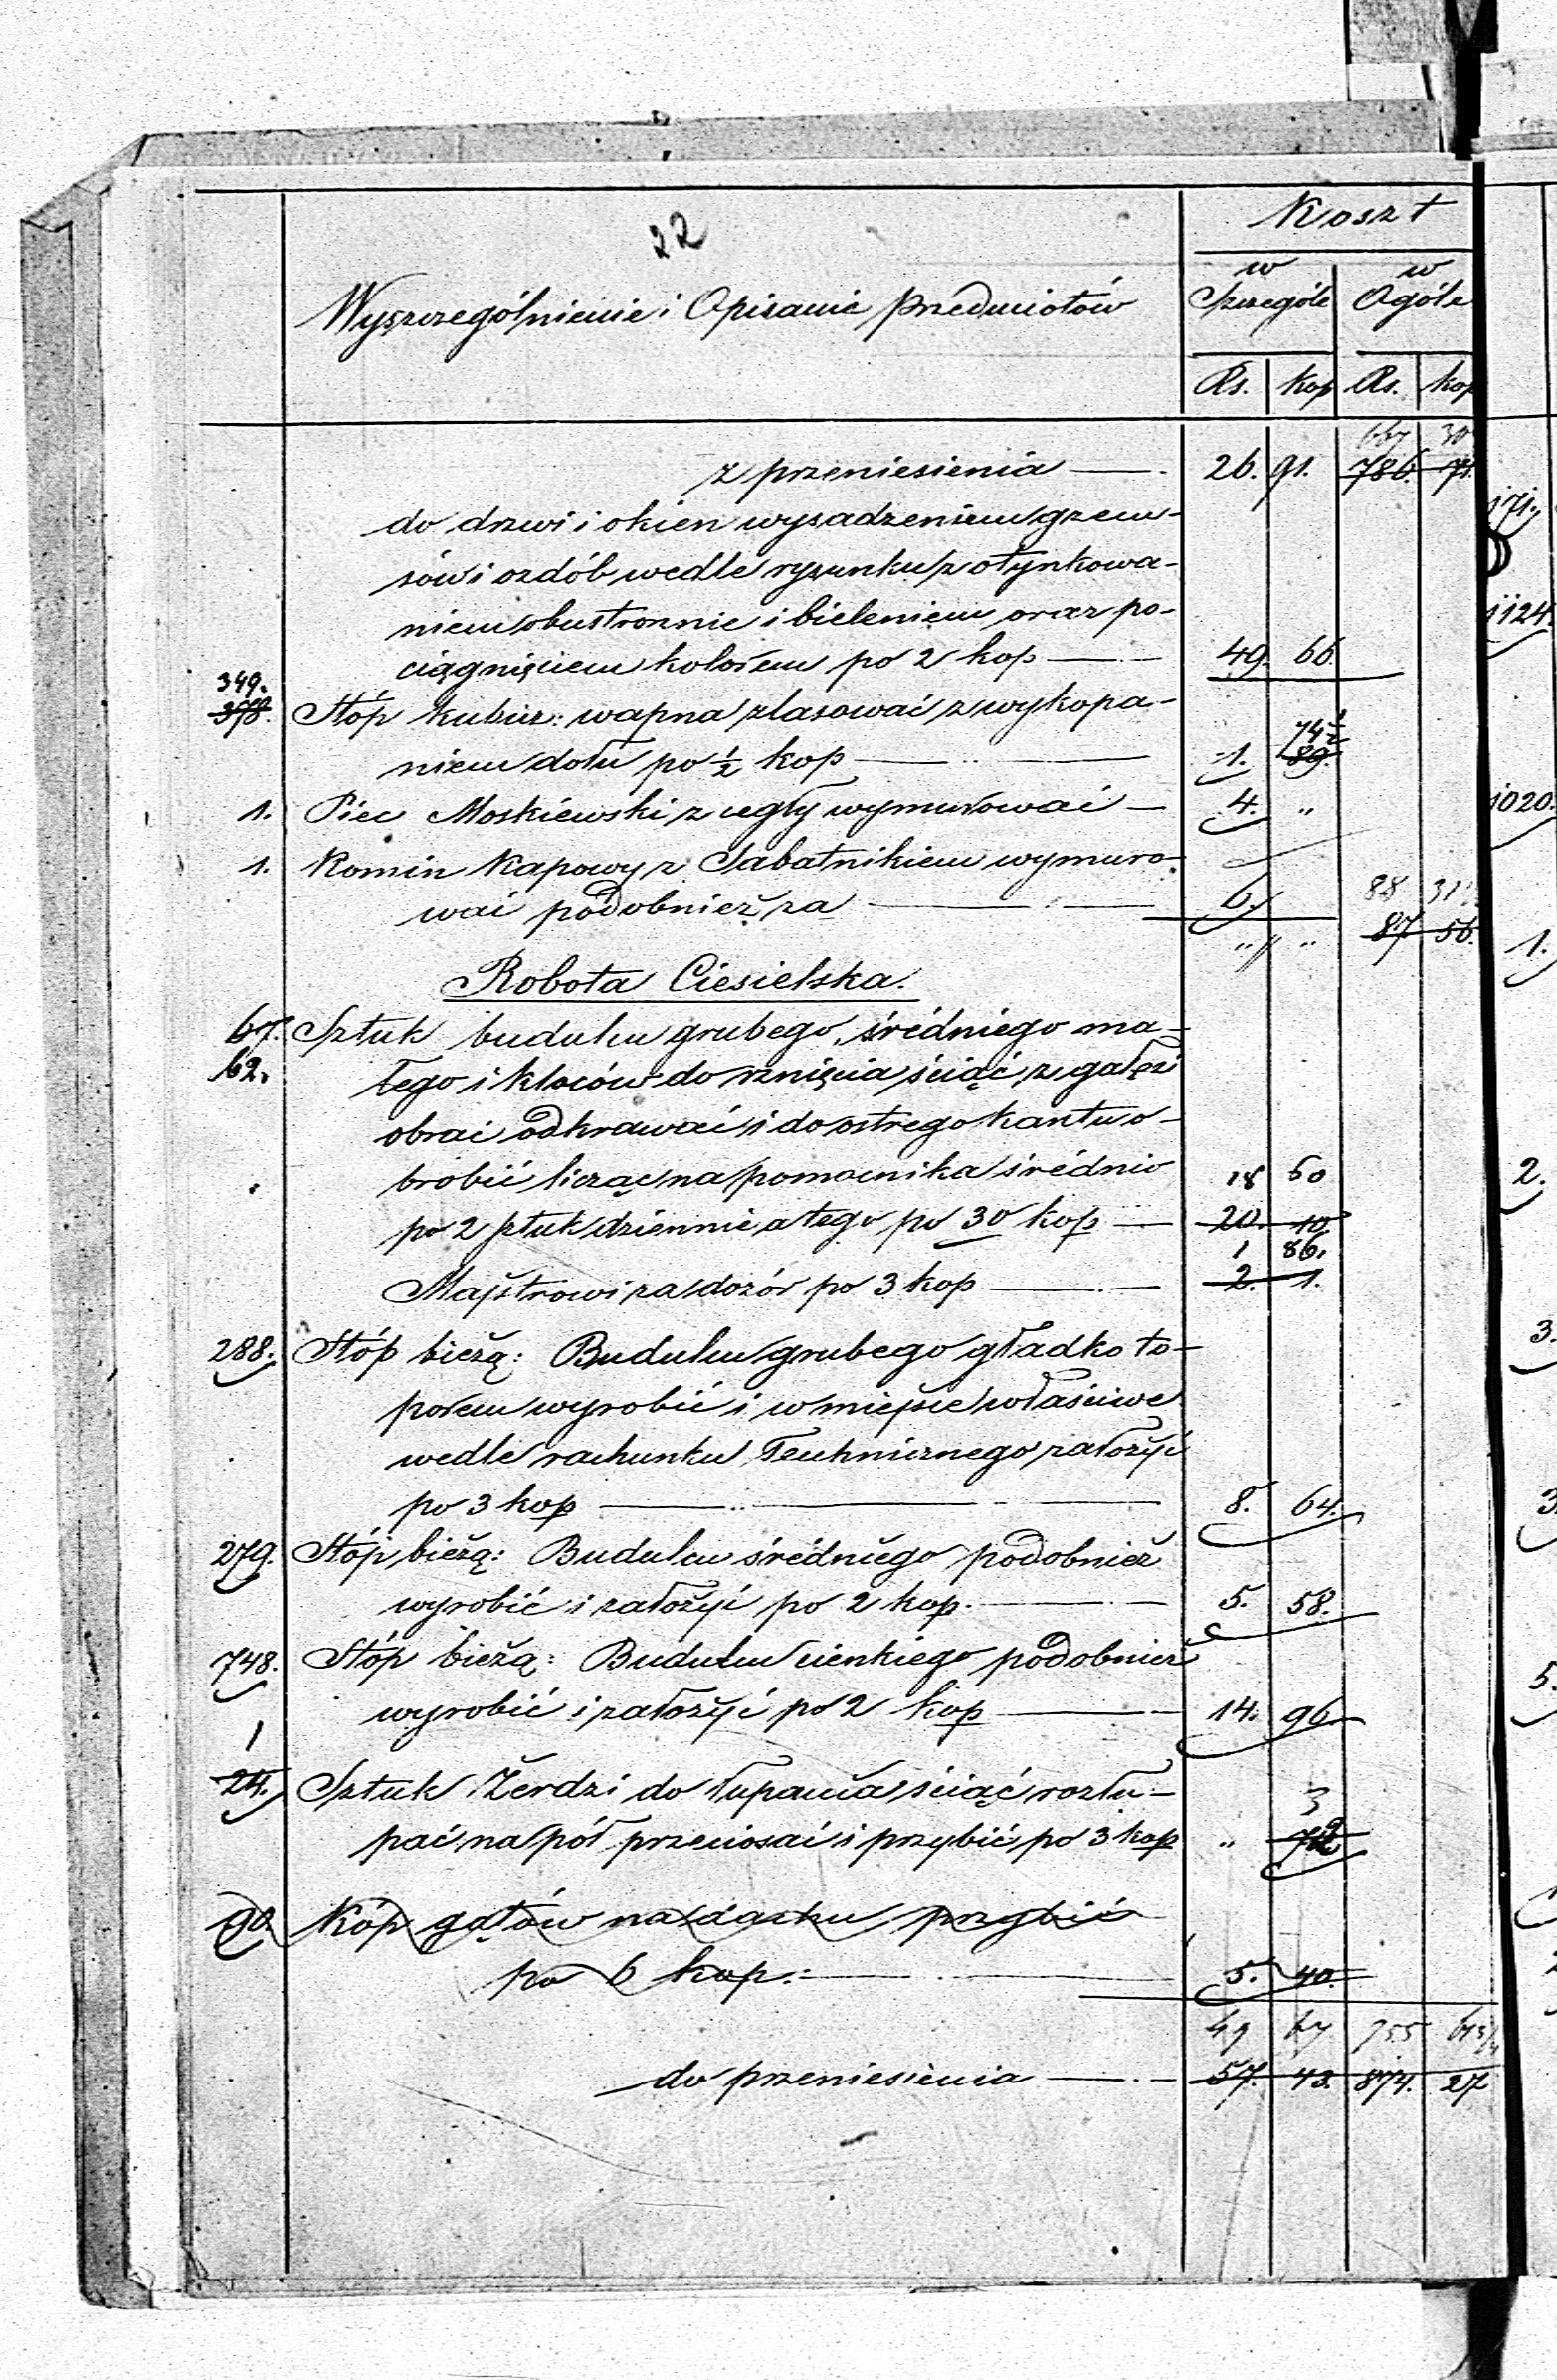 22
Koszt
Wyszczególnienie i Opisanie przedmiotów
w Szczególe w Ogóle
Rs. kop Rs. kop
667 30
z przeniesienia — 26. 91. 786. 71.
do drzwi i okien wysadzeniem gzem-
sów i ozdób wedle rysunku z otynkowa-
niem obustronnie i bieleniem oraz po-
ciągnięciem kolorem po 2 kop — 49. 66.
349.
378. Stóp kubicz: wapna zlasować z wykopa-
74½
niem dołu po ½ kop — 1. 89.
1. Piec Moskiewski z cegły wymurować — 4. "
1. Komin Kapowy z Sabatnikiem wymuro-
wać podobnież za — 6. " 88 31
" " 87 56.
Robota Ciesielska.
67. Sztuk budulcu grubego, średniego ma-
62. łego i kloców do rznięcia ściąć z gałęzi
obrać odkrawać i do ostrego kantu o-
brobić licząc na pomocnika średnio 18 60
po 2 sztuk dziennie a tego po 30 kop — 20. 10.
1 86.
Majstrowi za dozór po 3 kop — 2. 1.
288. Stóp bieżą: Budulcu grubego gładko to-
porem wyrobić i w miejsce właściwe
wedle rachunku Technicznego założyć
po 3 kop — 8. 64.
279. Stóp bieżą: Budulcu średniego podobnież
wyrobić i założyć po 2 kop. — 5. 58.
748. Stóp bieżą: Budulcu cienkiego podobnież
wyrobić i założyć po 2 kop — 14. 96
1
24. Sztuk Żerdzi do łupania ściąć rozłu-
3
pać na pół przeciosać i przybić po 3 kop " 72
90. Kóp gątów na dachu przybić
po 6 kop: — 5. 40.
49 67 755 61¾
do przeniesienia — 57. 43. 874. 27
171.
1124.
1020.
1.
2.
3.
3.
5.